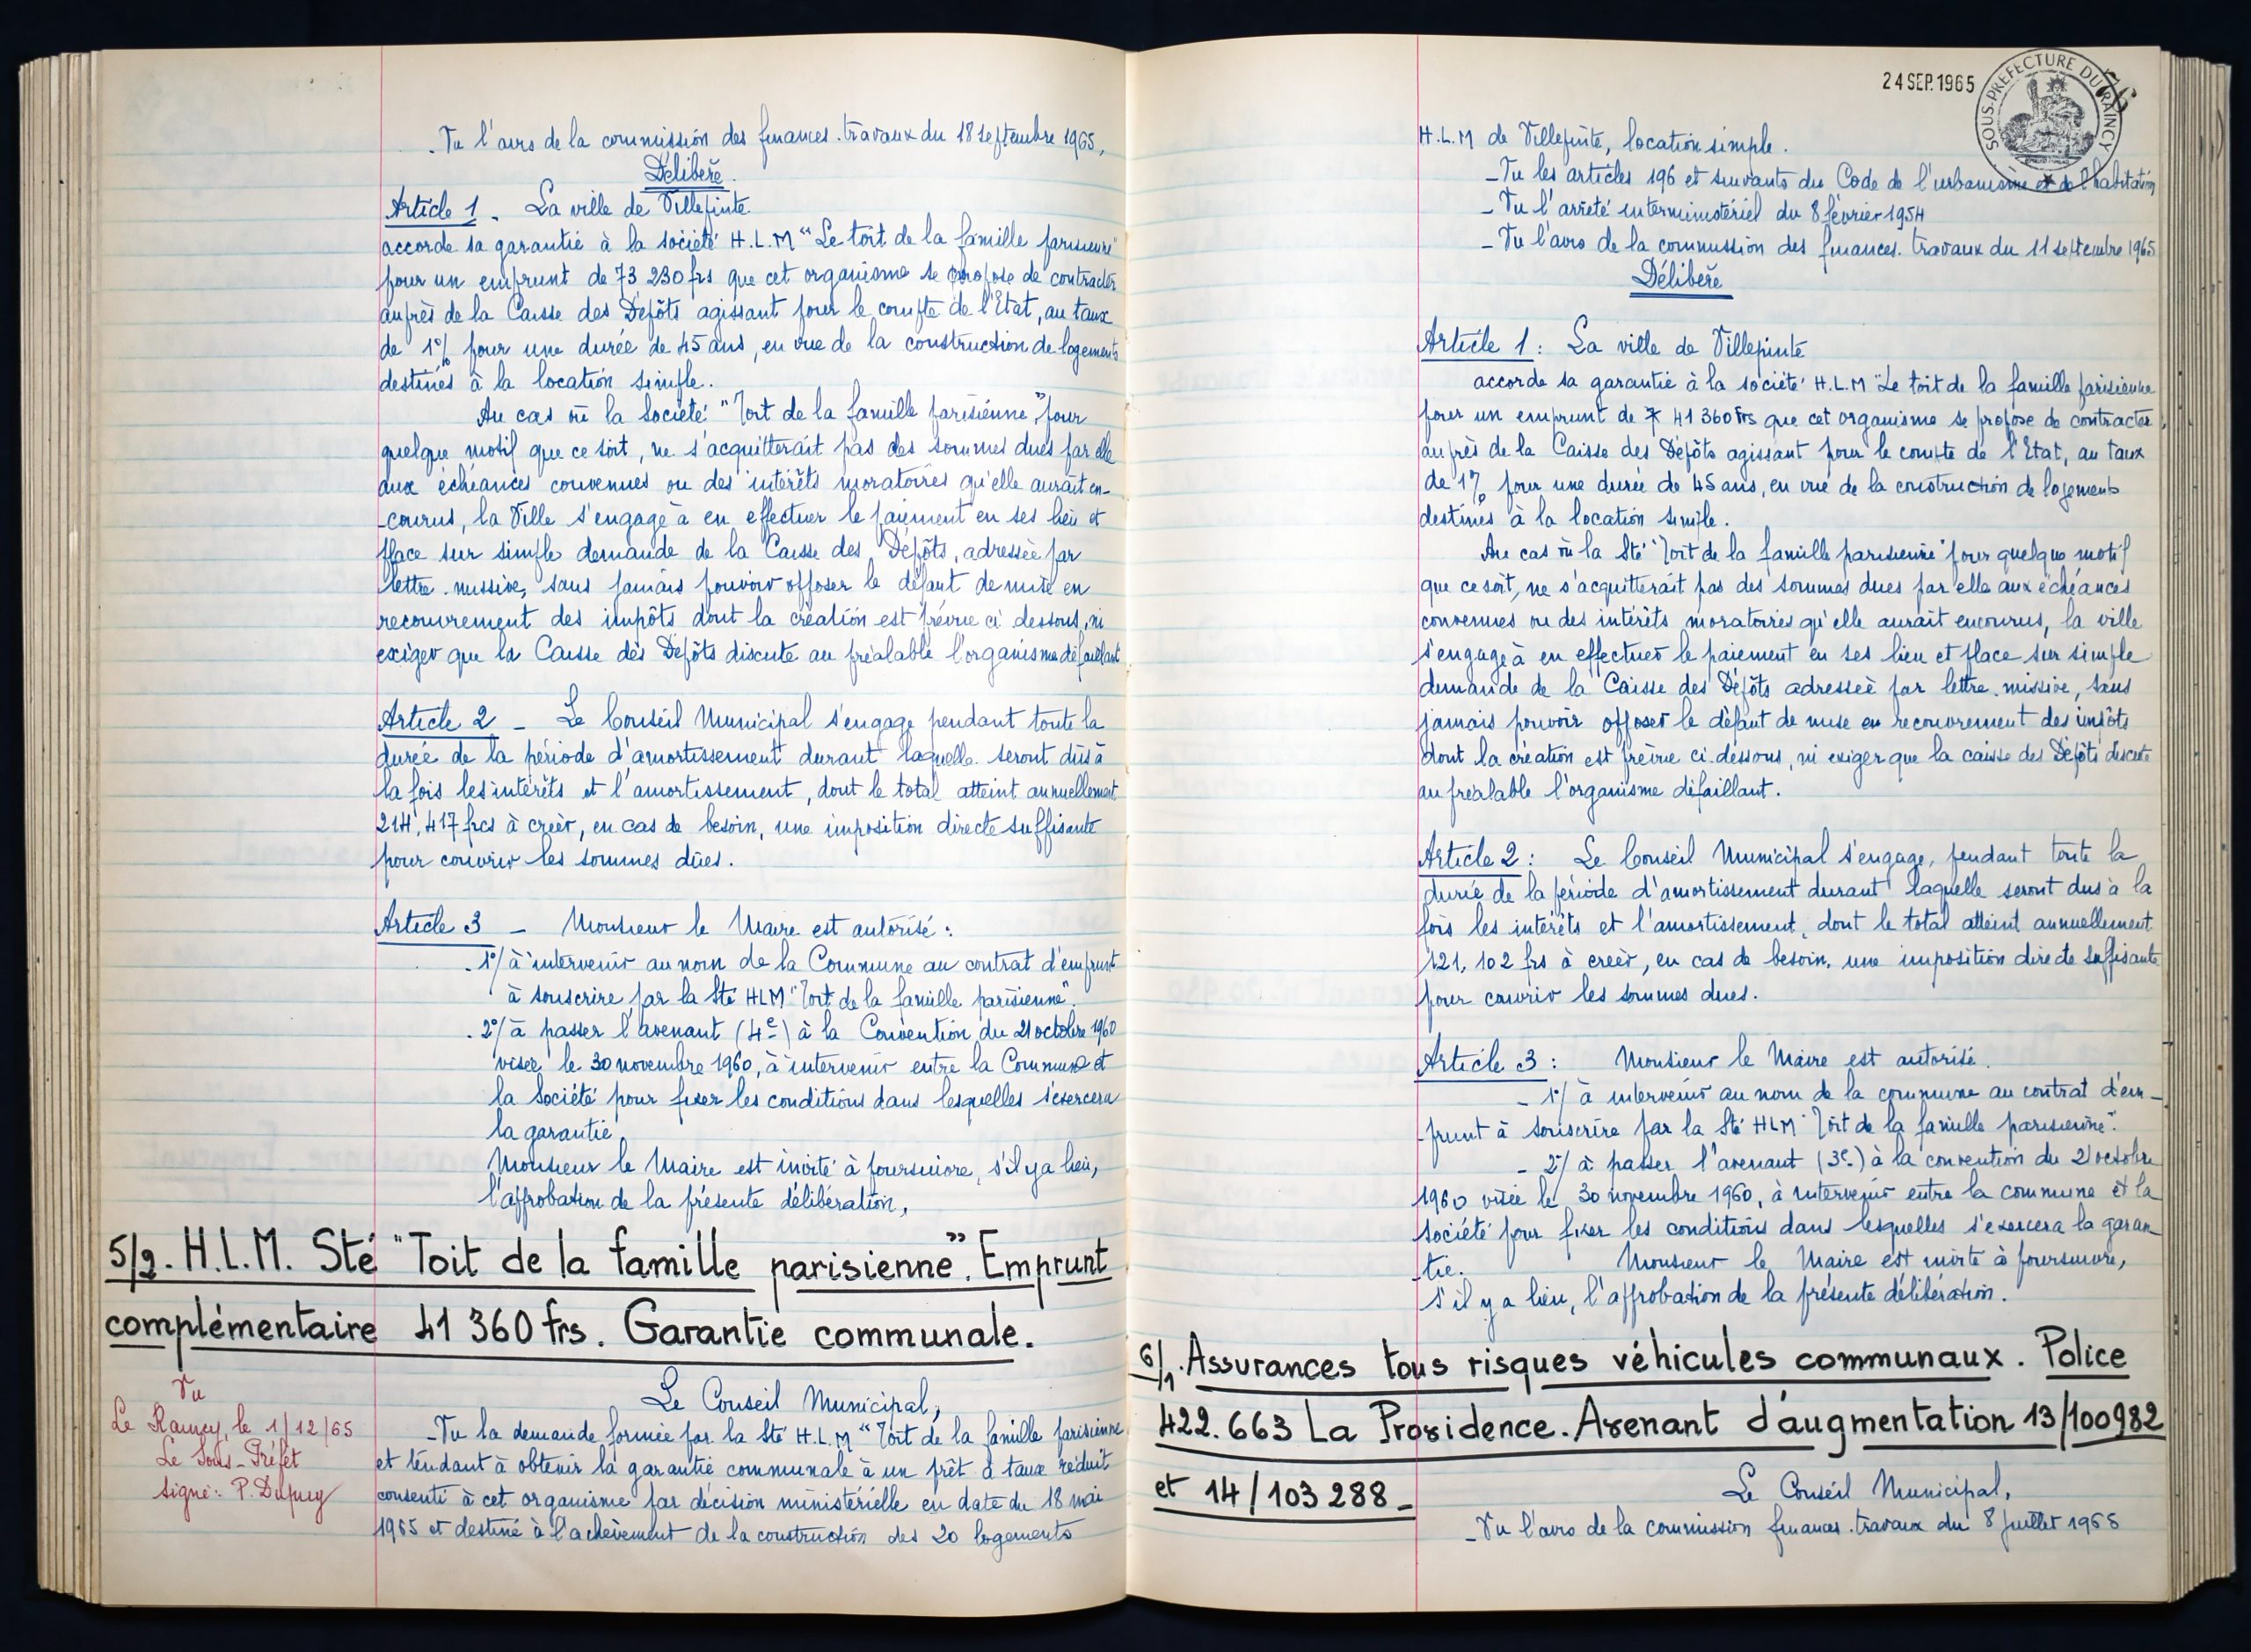 - Vu l'avis de la commission des finances. travaux du 18 septembre 1965,
Délibère.
Article 1 - La ville de Villepinte
accorde sa garantie à la société H.L.M "Le toit de la famille parisienne"
pour un emprunt de 73 230 frs que cet organisme se propose de contracter
auprès de la Caisse des Dépôts agissant pour le compte de l'Etat, au taux
de 1% pour une durée de 45 ans, en vue de la construction de logements
destinés à la location simple.
Au cas où la Société "Toit de la famille parisienne", pour
quelque motif que ce soit, ne s'acquitterait pas des sommes dues par elle
aux échéances convenues ou des intérêts moratoires qu'elle aurait en-
-courus, la Ville s'engage à en effectuer le paiement en ses lieu et
place sur simple demande de la Caisse des Dépôts, adressée par
lettre missive, sans jamais pouvoir opposer le défaut de mise en
recouvrement des impôts dont la création est prévue ci dessous, ni
exiger que la Caisse des Dépôts discute au préalable l'organisme défaillant
Article 2 - Le Conseil Municipal s'engage pendant toute la
durée de la période d'amortissement durant laquelle seront dûs à
la fois les intérêts et l'amortissement, dont le total atteint annuellement
214, 417 frcs à créer, en cas de besoin, une imposition directe suffisante
pour couvrir les sommes dûes.
Article 3 - Monsieur le Maire est autorisé :
- 1°/ à intervenir au nom de la Commune au contrat d'emprunt
à souscrire par la Sté HLM "Toit de la famille parisienne".
- 2°/ à passer l'avenant (4e) à la Convention du 21 octobre 1960
visée le 30 novembre 1960, à intervenir entre la Commune et
la Société pour fixer les conditions dans lesquelles s'exercera
la garantie.
Monsieur le Maire est invité à poursuivre, s'il y a lieu,
l'approbation de la présente délibération,
5/2. H.L.M. Sté "Toit de la famille parisienne". Emprunt
complémentaire 41 360 frs. Garantie communale.
Vu
Le Raincy, le 1/12/65
Le Sous-Préfet
signé: P. Dupuy
Le Conseil Municipal,
- Vu la demande formée par la Sté H.L.M "Toit de la famille parisienne
et tendant à obtenir la garantie communale à un prêt à taux réduit
consenti à cet organisme par décision ministérielle en date du 18 mai
1965 et destiné à l'achèvement de la construction des 20 logements
24 SEP. 1965
SOUS-PREFECTURE DU RAINCY
H.L.M de Villepinte, location simple.
- Vu les articles 196 et suivants du Code de l'urbanisme et de l'habitation
- Vu l'arrêté interministériel du 8 février 1954
- Vu l'avis de la commission des finances. travaux du 11 septembre 1965
Délibère
Article 1 : La ville de Villepinte
accorde sa garantie à la société H.L.M "Le toit de la famille parisienne
pour un emprunt de 41 360 frs que cet organisme se propose de contracter
auprès de la Caisse des Dépôts agissant pour le compte de l'Etat, au taux
de 1% pour une durée de 45 ans, en vue de la construction de logements
destinés à la location simple.
Au cas où la Sté "Toit de la famille parisienne" pour quelque motif
que ce soit, ne s'acquitterait pas des sommes dues par elle aux échéances
convenues ou des intérêts moratoires qu'elle aurait encourus, la ville
s'engage à en effectuer le paiement en ses lieu et place sur simple
demande de la Caisse des Dépôts adressée par lettre missive, sans
jamais pouvoir opposer le défaut de mise en recouvrement des impôts
dont la création est prévue ci-dessous, ni exiger que la caisse des Dépôts discute
au préalable l'organisme défaillant.
Article 2 : Le Conseil Municipal s'engage, pendant toute la
durée de la période d'amortissement durant laquelle seront dus à la
fois les intérêts et l'amortissement, dont le total atteint annuellement
121, 102 frs à créer, en cas de besoin, une imposition directe suffisante
pour couvrir les sommes dues.
Article 3 : Monsieur le Maire est autorisé.
- 1°/ à intervenir au nom de la commune au contrat d'em-
-prunt à souscrire par la Sté HLM "Toit de la famille parisienne".
- 2°/ à passer l'avenant (3e) à la convention du 21 octobre
1960 visée le 30 novembre 1960, à intervenir entre la commune et la
société pour fixer les conditions dans lesquelles s'exercera la garan-
-tie. Monsieur le Maire est invité à poursuivre,
s'il y a lieu, l'approbation de la présente délibération.
6/1. Assurances tous risques véhicules communaux. Police
422.663 La Providence. Avenant d'augmentation 13/100982
et 14/103288 -
Le Conseil Municipal,
- Vu l'avis de la commission finances. travaux du 8 juillet 1965